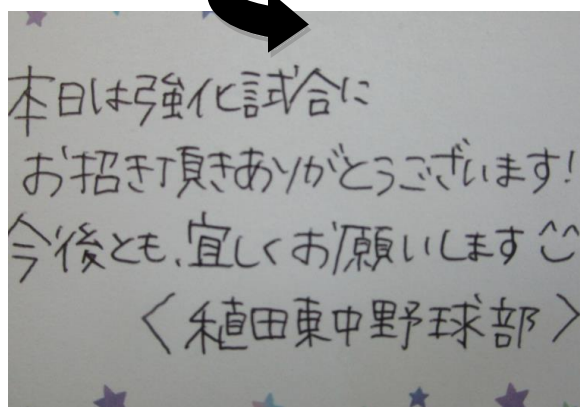 本日は強化試合に
お招き頂きありがとうございます!
今後とも、宜しくお願いします^^
〈植田東中野球部〉